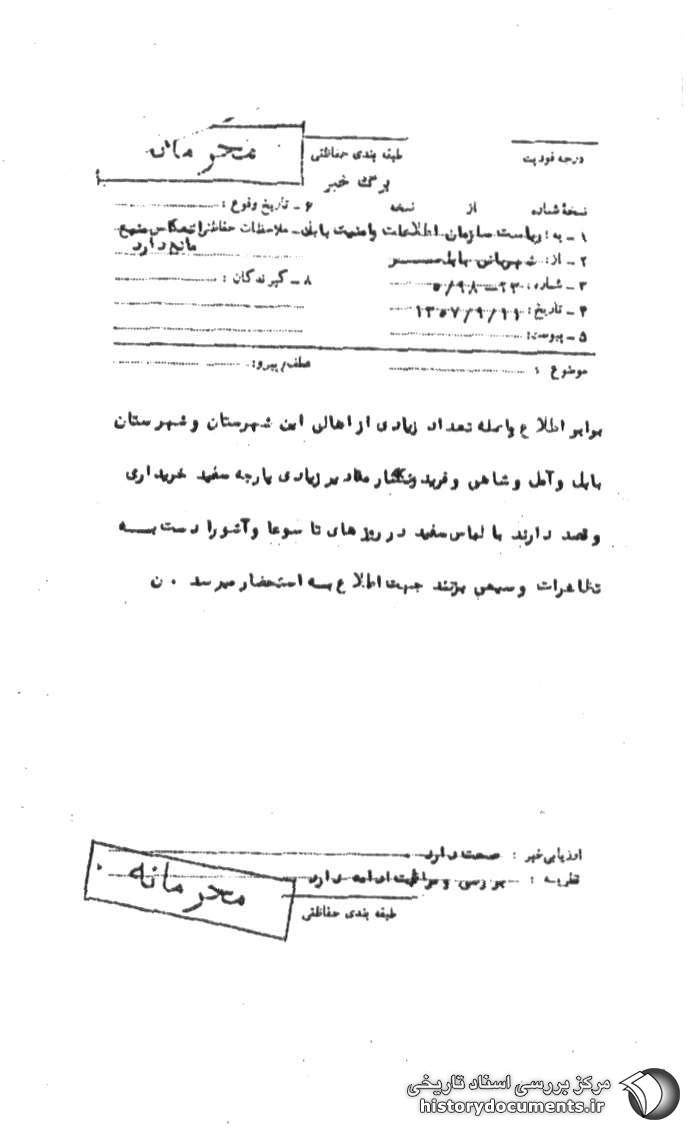 محرمانه
درجه فوریت
طبقه بندی حفاظتی
برگ خبر
نسخه شماره از نسخه
۶ - تاریخ وقوع :
۱ - به : ریاست سازمان اطلاعات وامنیت بابل
ملاحظات حفاظتی انعکاس منبع
مانع دارد
۲ - از : شهربانی بابلسر
۳ - شماره : ۲۳-۵/۹۸
۸ - گیرندگان :
۴ - تاریخ : ۱۳۵۷/۹/۱۱
۵ - پیوست :
موضوع :
عطف/پیرو :
برابر اطلاع واصله تعداد زیادی از اهالی این شهرستان و شهرستان
بابل و آمل و شاهی و فریدونکنار مقادیر زیادی پارچه سفید خریداری
و قصد دارند با لباس سفید در روزهای تاسوعا و آشورا دست به
تظاهرات وسیعی بزنند جهت اطلاع به استحضار میرسد . ن
ارزیابی خبر : صحت دارد
نظریه : بررسی و مراقبت ادامه دارد
محرمانه
طبقه بندی حفاظتی
مرکز بررسی اسناد تاریخی
historydocuments.ir